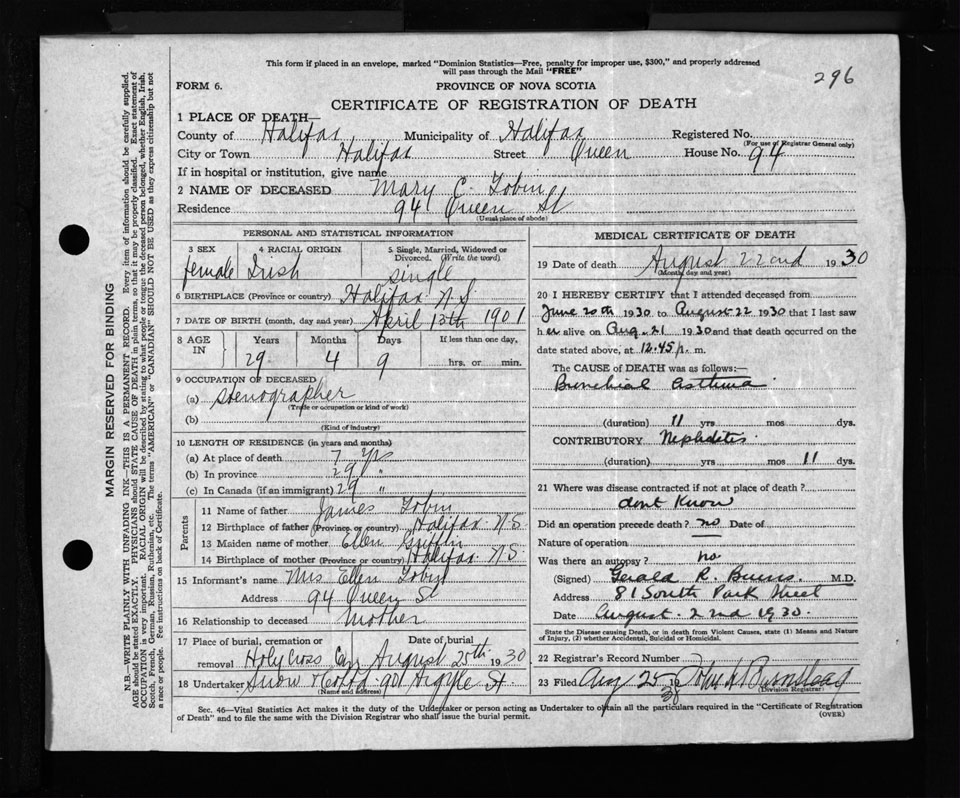 This form if placed in an envelope, marked "Dominion Statistics—Free, penalty for improper use, $300," and properly addressed
will pass through the Mail "FREE"
296
FORM 6.
PROVINCE OF NOVA SCOTIA
CERTIFICATE OF REGISTRATION OF DEATH
1 PLACE OF DEATH—
County of Halifax Municipality of Halifax Registered No.
(For use of Registrar General only)
City or Town Halifax Street Queen House No. 94
If in hospital or institution, give name
2 NAME OF DECEASED Mary C. Tobin
Residence 94 Queen St
(Usual place of abode)
PERSONAL AND STATISTICAL INFORMATION
3 SEX 4 RACIAL ORIGIN 5 Single, Married, Widowed or
Divorced. (Write the word)
female Irish single
6 BIRTHPLACE (Province or country) Halifax N S
7 DATE OF BIRTH (month, day and year) April 13th 1901
8 AGE IN Years Months Days If less than one day,
29 4 9 hrs. or min.
9 OCCUPATION OF DECEASED
(a) Stenographer
(Trade or occupation or kind of work)
(b)
(Kind of industry)
10 LENGTH OF RESIDENCE (in years and months)
(a) At place of death 7 yrs
(b) In province 29 "
(c) In Canada (if an immigrant) 29 "
Parents
11 Name of father James Tobin
12 Birthplace of father (Province or country) Halifax N S
13 Maiden name of mother Ellen Griffin
14 Birthplace of mother (Province or country) Halifax N S
15 Informant's name Mrs Ellen Tobin
Address 94 Queen St
16 Relationship to deceased Mother
17 Place of burial, cremation or Date of burial
removal Holy Cross Cem August 25th 1930
18 Undertaker Snow & Co Ltd 90 Argyle St
(Name and address)
MEDICAL CERTIFICATE OF DEATH
19 Date of death August 22nd 1930
(Month, day and year)
20 I HEREBY CERTIFY that I attended deceased from
June 20th 1930 to August 22 1930 that I last saw
her alive on Aug. 21 1930 and that death occurred on the
date stated above, at 12.45 p. m.
The CAUSE of DEATH was as follows:—
Bronchial asthma
(duration) 11 yrs mos dys.
CONTRIBUTORY Nephritis
(duration) yrs mos 11 dys.
21 Where was disease contracted if not at place of death?
dont Know
Did an operation precede death? no Date of
Nature of operation
Was there an autopsy? no
(Signed) Gerald R. Burns. M.D.
Address 81 South Park Street
Date August. 22nd 1930.
State the Disease causing Death, or in death from Violent Causes, state (1) Means and Nature
of Injury, (2) whether Accidental, Suicidal or Homicidal.
22 Registrar's Record Number
23 Filed Aug 25 30
(Division Registrar)
Sec. 46—Vital Statistics Act makes it the duty of the Undertaker or person acting as Undertaker to obtain all the particulars required in the "Certificate of Registration
of Death" and to file the same with the Division Registrar who shall issue the burial permit.
(OVER)
MARGIN RESERVED FOR BINDING
N.B.—WRITE PLAINLY WITH UNFADING INK—THIS IS A PERMANENT RECORD. Every item of information should be carefully supplied.
AGE should be stated EXACTLY. PHYSICIANS should STATE CAUSE OF DEATH in plain terms, so that it may be properly classified. Exact statement of
OCCUPATION is very important. RACIAL ORIGIN will be described by stating to what people or tongue the deceased person belonged, whether English, Irish,
Scotch, French, German, Russian, Ruthenian, etc. The terms "AMERICAN" or "CANADIAN" SHOULD NOT BE USED as they express citizenship but not
a race or people. See instructions on back of Certificate.